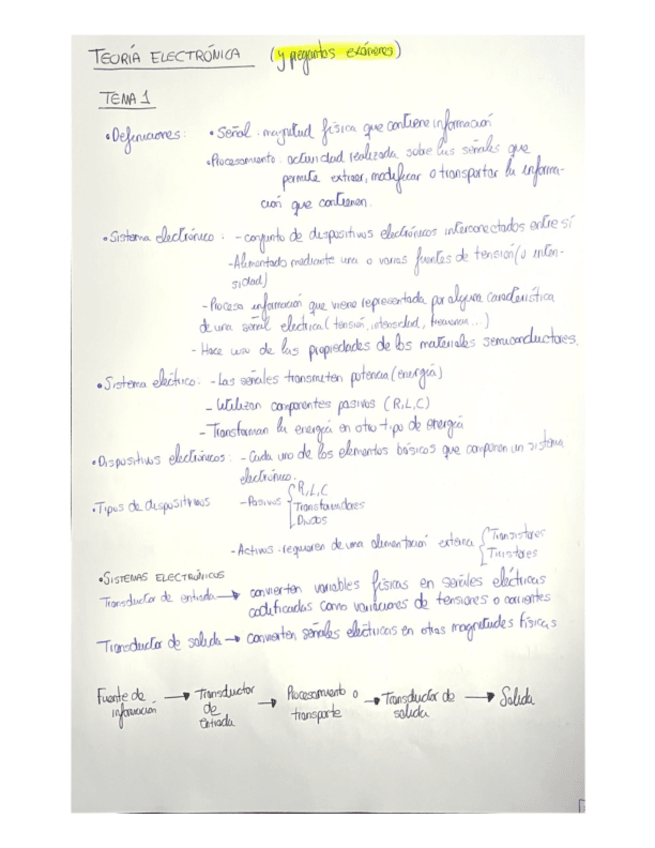 TEORÍA ELECTRÓNICA (y preguntas exámenes)
TEMA 1
• Definiciones: • Señal: magnitud física que contiene información
• Procesamiento: actividad realizada sobre las señales que
permite extraer, modificar o transportar la informa-
ción que contienen.
• Sistema electrónico: - conjunto de dispositivos electrónicos interconectados entre sí
- Alimentado mediante una o varias fuentes de tensión (o inten-
sidad)
- Procesa información que viene representada por alguna característica
de una señal eléctrica (tensión, intensidad, frecuencia...)
- Hace uso de las propiedades de los materiales semiconductores.
• Sistema eléctrico: - Las señales transmiten potencia (energía)
- Utilizan componentes pasivos (R,L,C)
- Transforman la energía en otro tipo de energía
• Dispositivos electrónicos: - Cada uno de los elementos básicos que componen un sistema
electrónico.
• Tipos de dispositivos - Pasivos { R,L,C
Transformadores
Diodos
- Activos: requieren de una alimentación externa { Transistores
Tiristores
• SISTEMAS ELECTRÓNICOS
Transductor de entrada → convierten variables físicas en señales eléctricas
codificadas como variaciones de tensiones o corrientes
Transductor de salida → convierten señales eléctricas en otras magnitudes físicas
Fuente de información → Transductor de entrada → Procesamiento o transporte → Transductor de salida → Salida